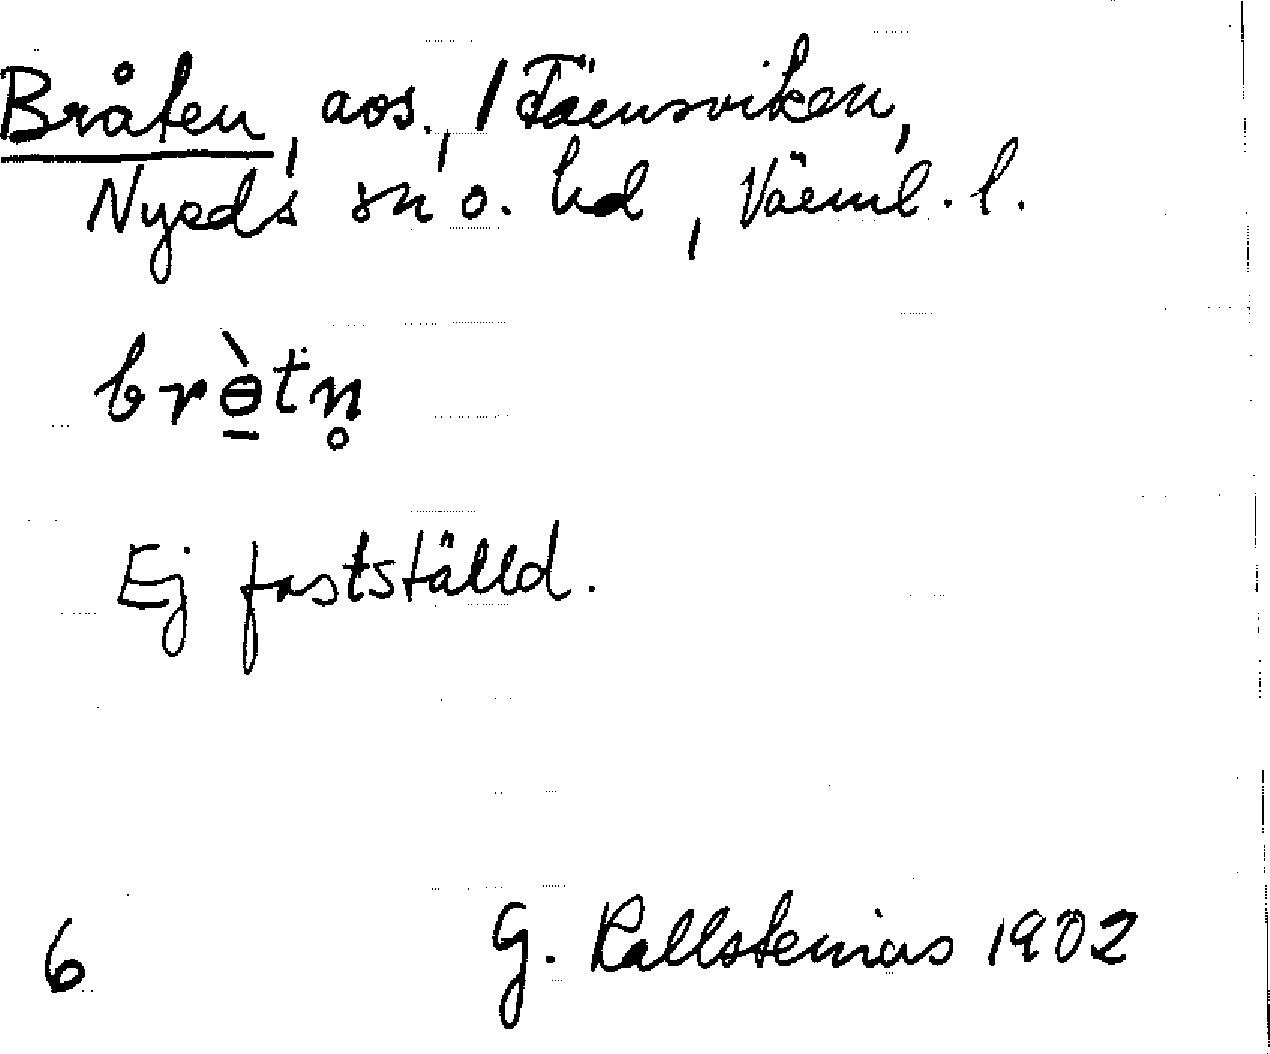 Bråten, aos., / Tärnsviken,
Nyeds sn o. hd, Värml. l.
brɵ̠̀tn̥
Ej fastställd.
6 G. Kallstenius 1902